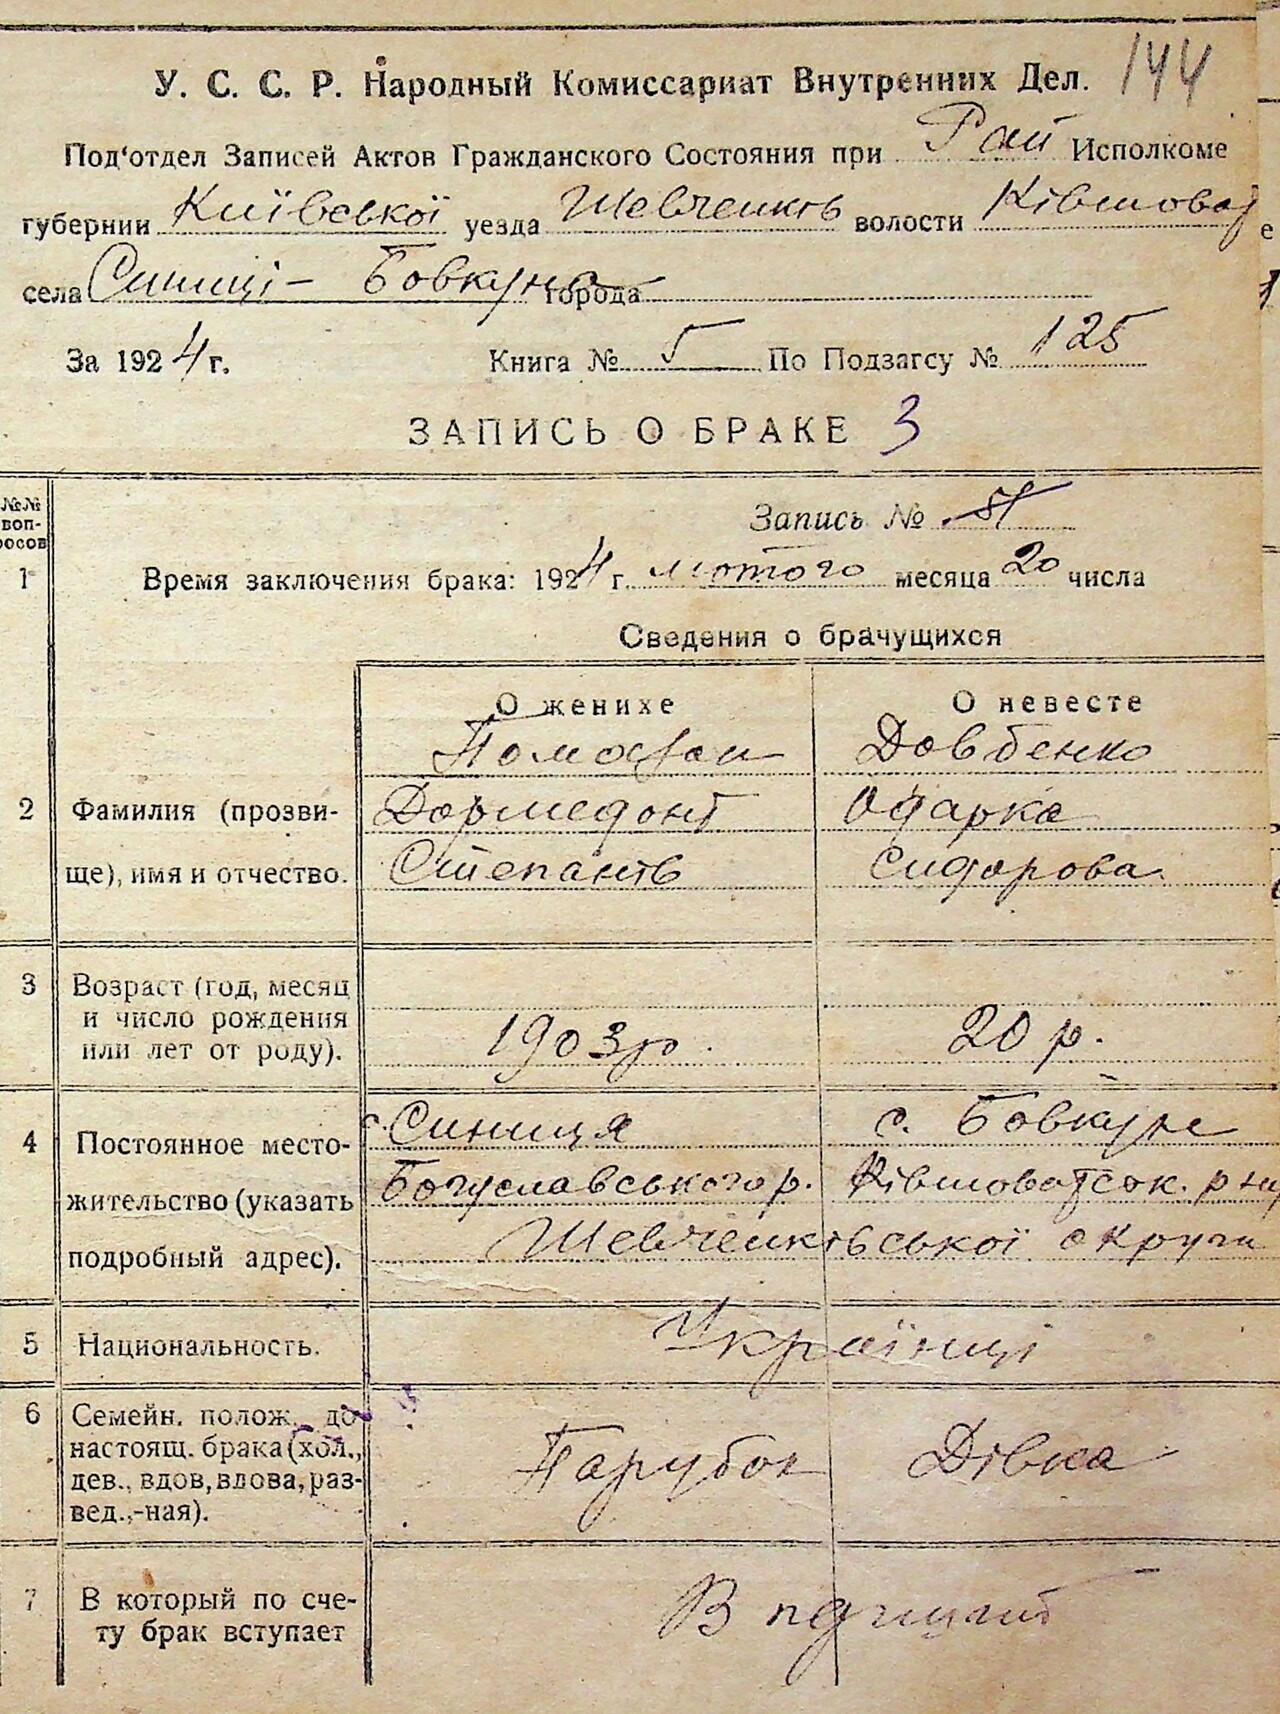 144
У. С. С. Р. Народный Комиссариат Внутренних Дел.
Под'отдел Записей Актов Гражданского Состояния при Рай Исполкоме
губернии Київської уезда Шевченків волости Ківшоват
села Синиці - Бовкуни города
За 1924 г. Книга № 5 По Подзагсу № 125
ЗАПИСЬ О БРАКЕ 3
№№ воп-росов
Запись № 51
1 Время заключения брака: 1924 г. лютого месяца 20 числа
Сведения о брачущихся
О женихе О невесте
Довбенко
2 Фамилия (прозви- Дормедонт Одарка
ще), имя и отчество. Степанів Сидорова
3 Возраст (год, месяц
и число рождения 1903 р. 20 р.
или лет от роду).
4 Постоянное место- с. Синиця с. Бовкуни
жительство (указать Богуславського р. Ківшоватськ. р-ну
подробный адрес). Шевченківської округи
5 Национальность. Українці
6 Семейн. полож. до
настоящ. брака (хол., Парубок Дівка
дев., вдов, вдова, раз-
вед.,-ная).
7 В который по сче-
ту брак вступает В